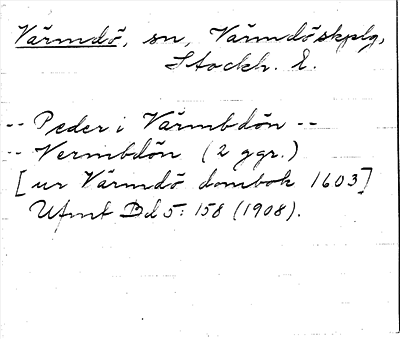 Värmdö, sn, Värmdöskplg,
Stockh. L.
-- Peder i Värmbdön --
-- Vermbdön (2 ggr.)
[ur Värmdö dombok 1603]
Ufmt Bd 5: 158 (1908).